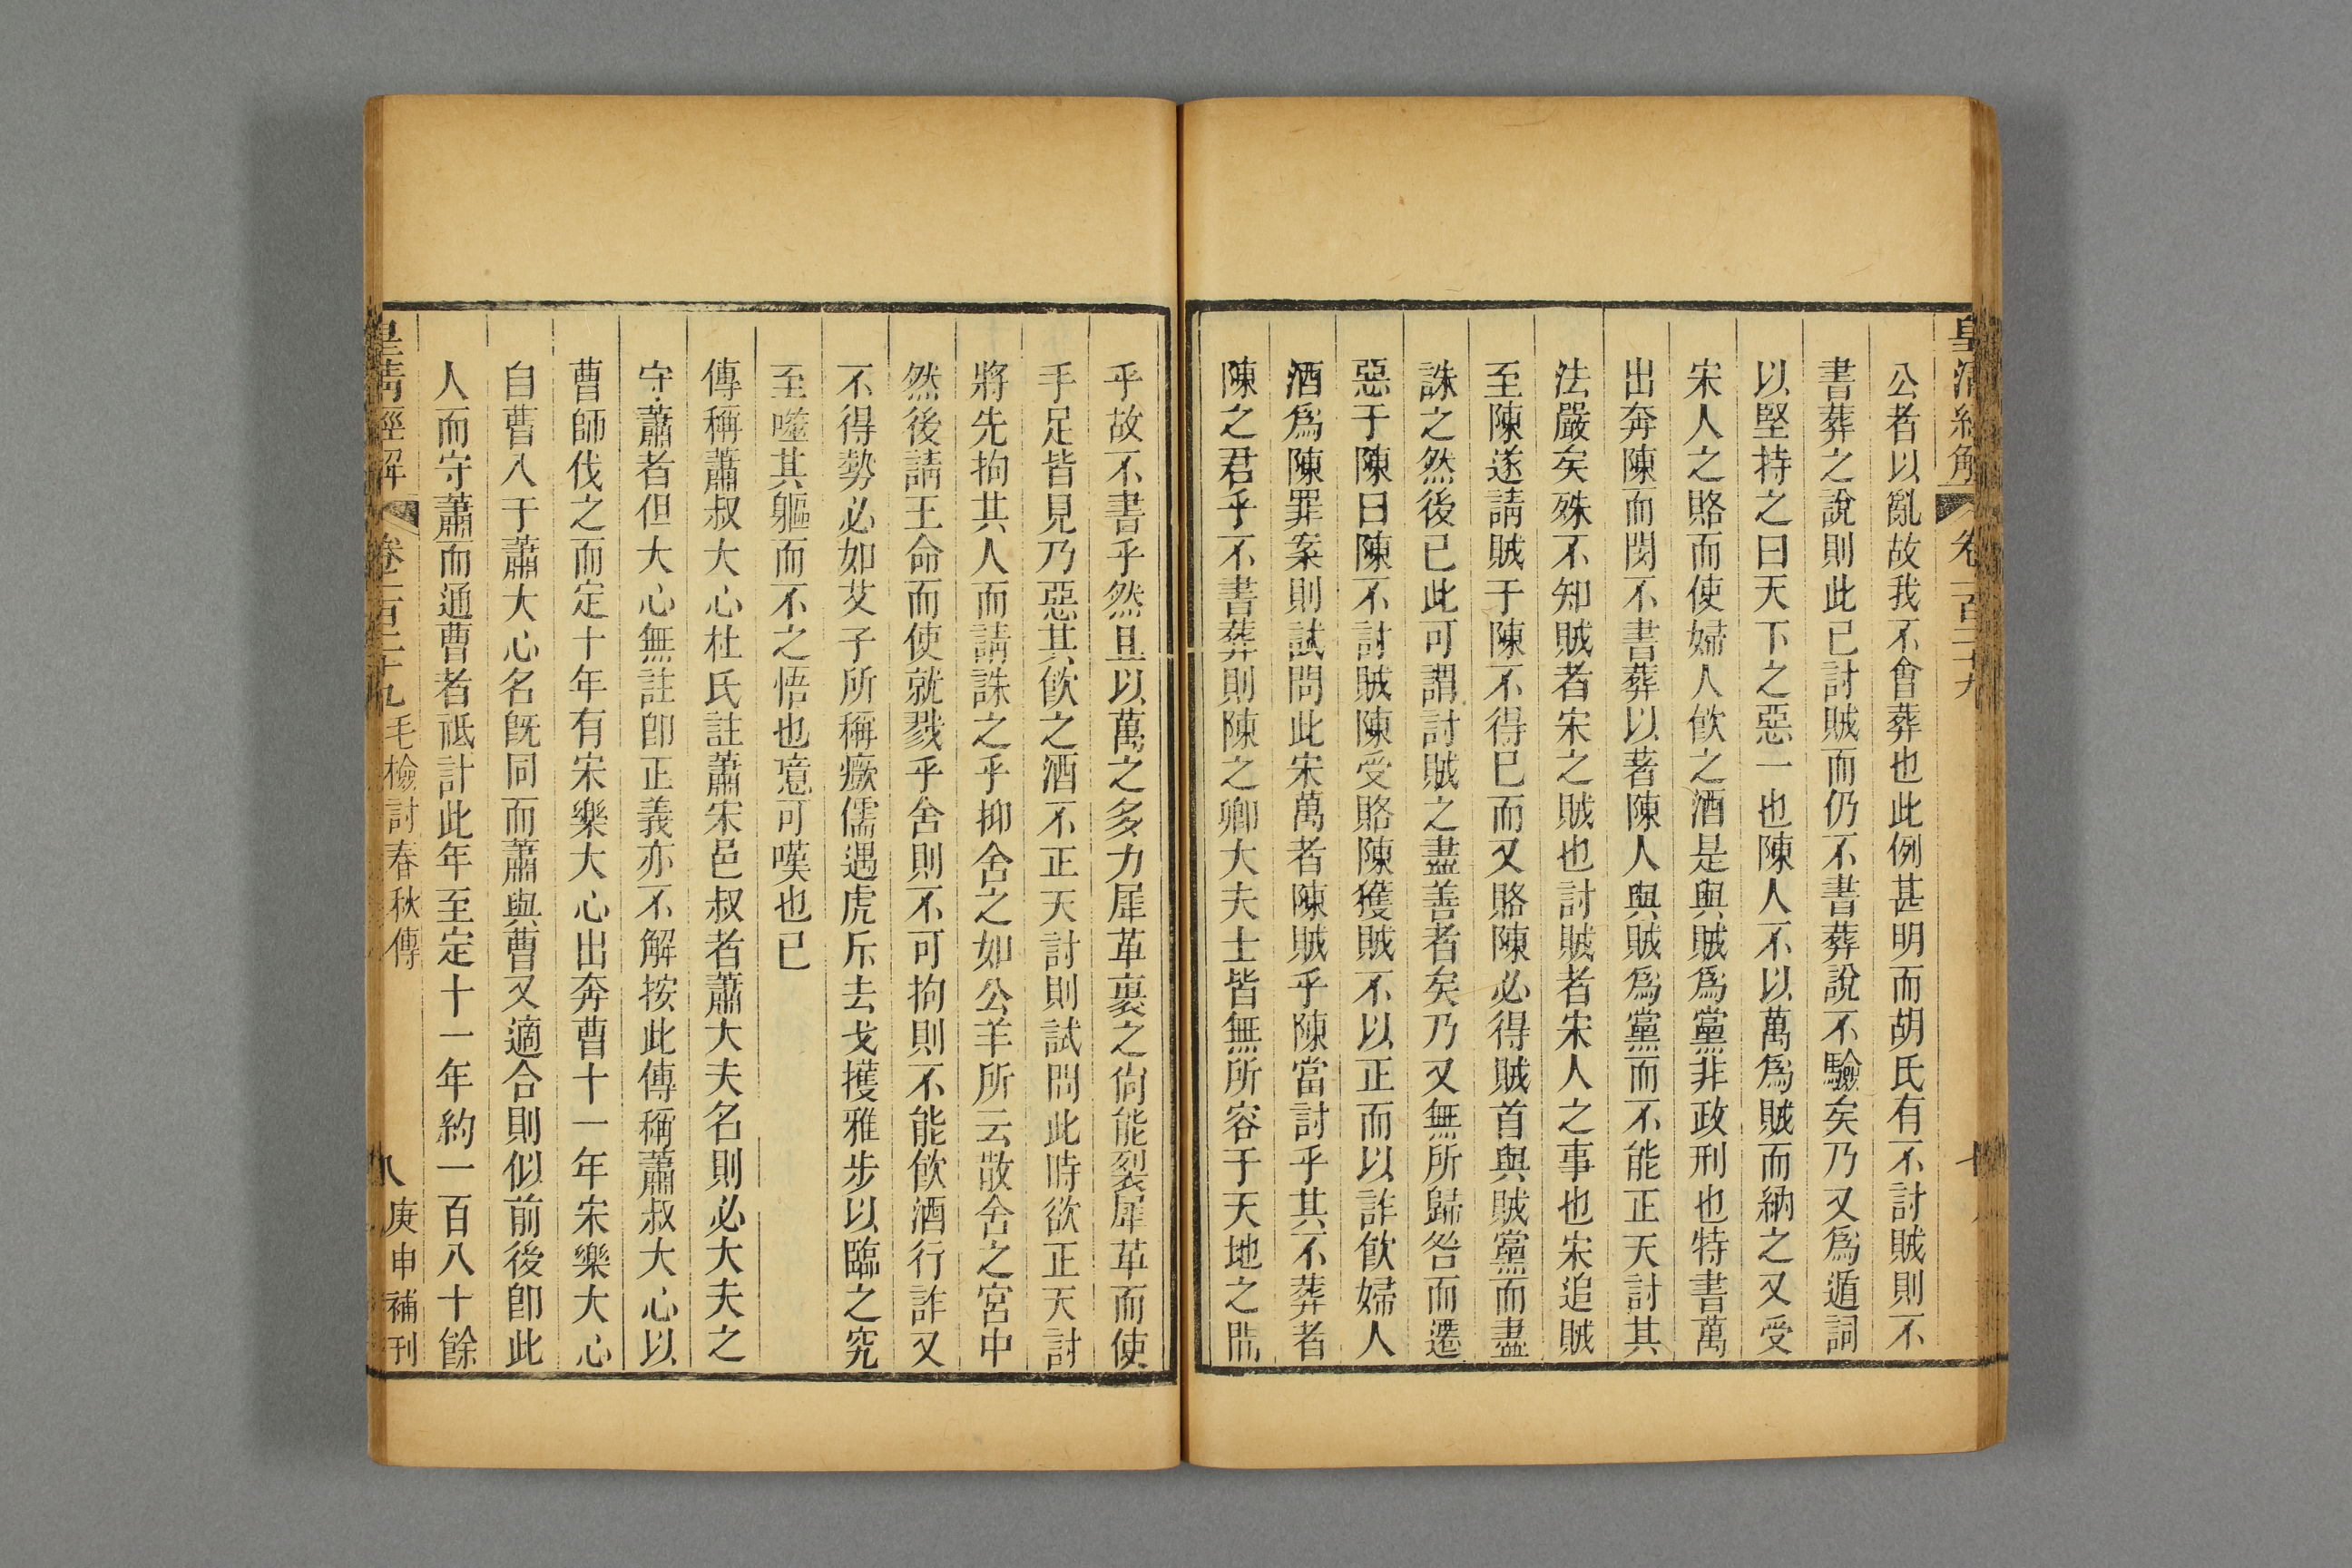 皇清經解 卷一百二十九
公者以亂故我不會葬也此例甚明而胡氏有不討賊則不
書葬之說則此已討賊而仍不書葬說不驗矣乃又爲遁詞
以堅持之曰天下之惡一也陳人不以萬爲賊而納之又受
宋人之賂而使婦人飮之酒是與賊爲黨非政刑也特書萬
出奔陳而閔不書葬以著陳人與賊爲黨而不能正天討其
法嚴矣殊不知賊者宋之賊也討賊者宋人之事也宋追賊
至陳遂請賊于陳不得已而又賂陳必得賊首與賊黨而盡
誅之然後已此可謂討賊之盡善者矣乃又無所歸咎而遷
惡于陳曰陳不討賊陳受賂陳獲賊不以正而以詐飮婦人
酒爲陳罪案則試問此宋萬者陳賊乎陳當討乎其不葬者
陳之君乎不書葬則陳之卿大夫士皆無所容于天地之間
乎故不書乎然且以萬之多力犀革裏之尙能裂犀革而使
手足皆見乃惡其飮之酒不正天討則試問此時欲正天討
將先拘其人而請誅之乎抑舍之如公羊所云散舍之宮中
然後請王命而使就戮乎舍則不可拘則不能飮酒行詐又
不得勢必如艾子所稱癡儒遇虎斥去戈擭雅步以臨之究
至噬其軀而不之悟也噫可嘆也已
傳稱蕭叔大心杜氏註蕭宋邑叔者蕭大夫名則必大夫之
守蕭者但大心無註卽正義亦不解按此傳稱蕭叔大心以
曹師伐之而定十年有宋樂大心出奔曹十一年宋樂大心
自曹入于蕭大心名旣同而蕭與曹又適合則似前後卽此
人而守蕭而通曹者祗計此年至定十一年約一百八十餘
皇淸經解 卷一百二十九 毛檢討春秋傳 八 庚申補刊